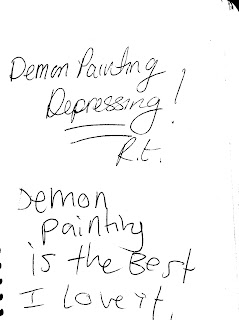 Demon Painting
Depressing!
R.t.
Demon
painting
is the Best
I love it.